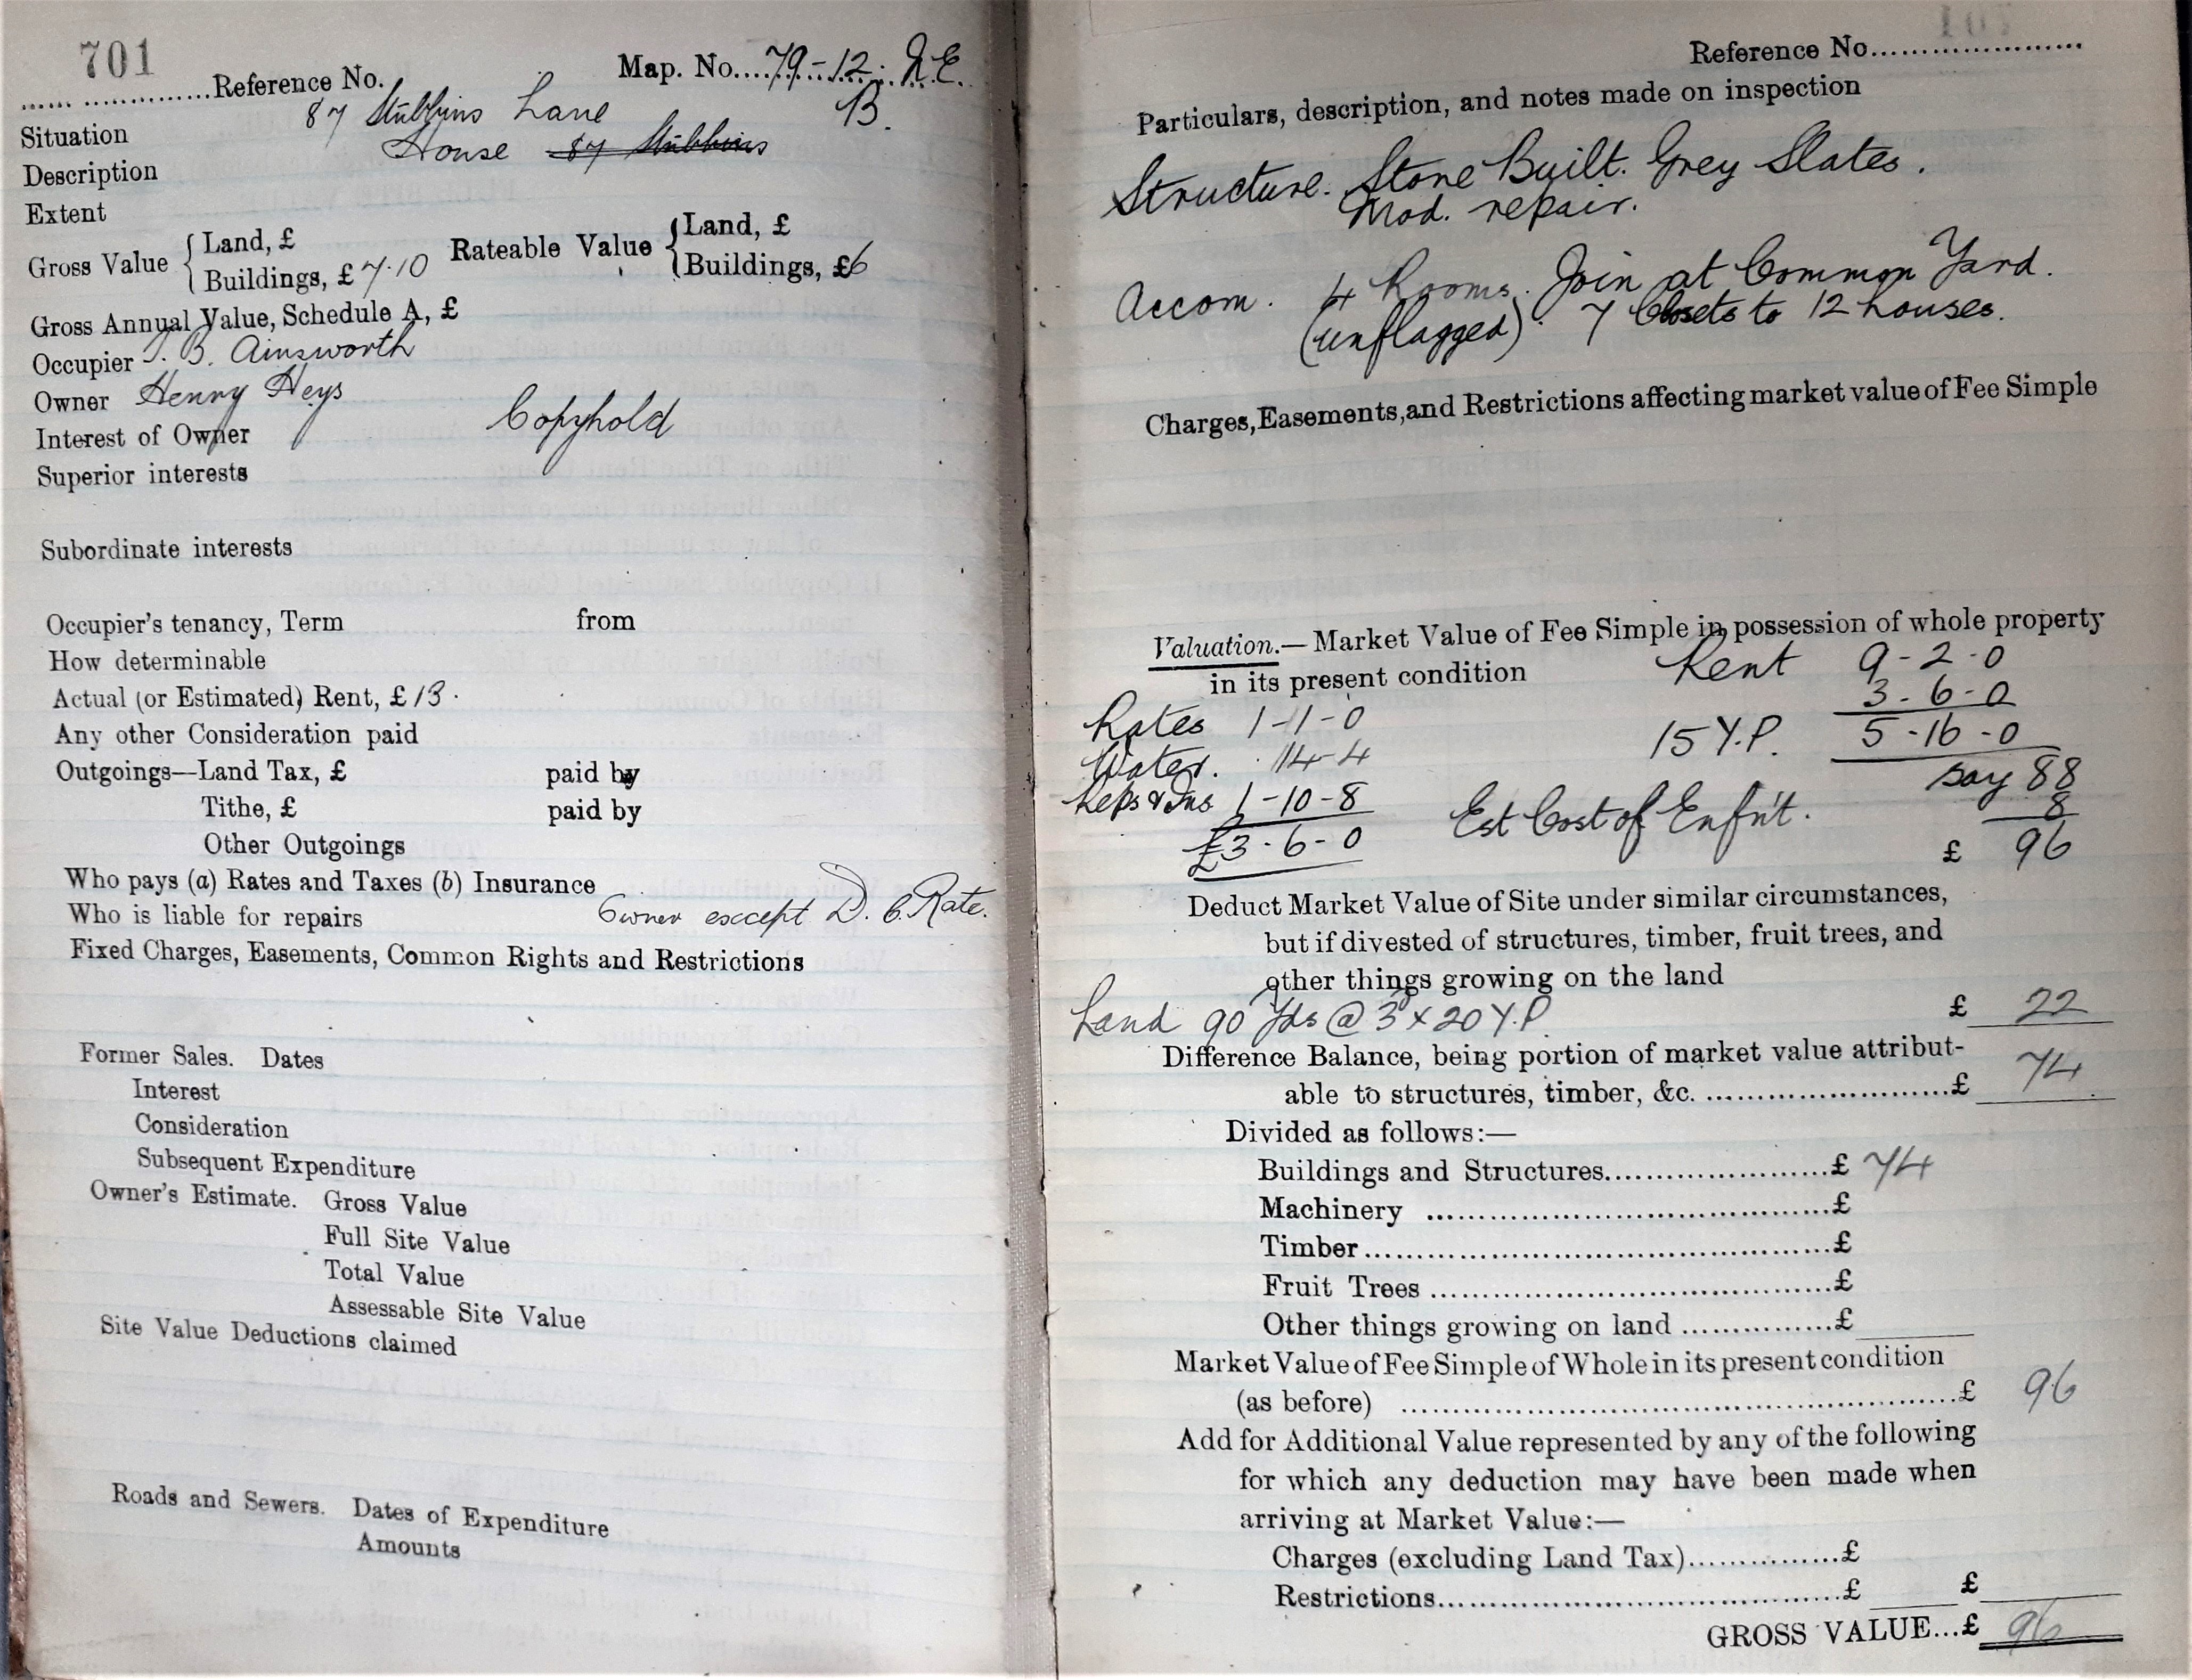 701
Reference No. Map. No. 79-12. N.E.
Situation 87 Stubbins Lane B.
Description House 87 Stubbins
Extent
Gross Value { Land, £ Rateable Value { Land, £
Buildings, £ 7.10 Buildings, £6
Gross Annual Value, Schedule A, £
Occupier B. Ainsworth
Owner Henry Heys
Interest of Owner Copyhold
Superior interests
Subordinate interests
Occupier's tenancy, Term from
How determinable
Actual (or Estimated) Rent, £ 13.
Any other Consideration paid
Outgoings—Land Tax, £ paid by
Tithe, £ paid by
Other Outgoings
Who pays (a) Rates and Taxes (b) Insurance
Who is liable for repairs Owner except D. C. Rate.
Fixed Charges, Easements, Common Rights and Restrictions
Former Sales. Dates
Interest
Consideration
Subsequent Expenditure
Owner's Estimate. Gross Value
Full Site Value
Total Value
Assessable Site Value
Site Value Deductions claimed
Roads and Sewers. Dates of Expenditure
Amounts
Reference No.
Particulars, description, and notes made on inspection
Structure. Stone Built. Grey Slates.
Mod. repair.
Accom. 4 Rooms. Join at Common Yard.
(unflagged). 7 Closets to 12 houses.
Charges, Easements, and Restrictions affecting market value of Fee Simple
Valuation.— Market Value of Fee Simple in possession of whole property
in its present condition Rent 9-2-0
3-6-0
Rates 1-1-0 15 Y.P. 5-16-0
Water. 14-4 say 88
Reps & Ins 1-10-8 Est Cost of Enfn't. 8
£3-6-0 £ 96
Deduct Market Value of Site under similar circumstances,
but if divested of structures, timber, fruit trees, and
other things growing on the land
Land 90 Yds @ 3d x 20 Y.P. £ 22
Difference Balance, being portion of market value attribut-
able to structures, timber, &c. £ 74
Divided as follows:—
Buildings and Structures £ 74
Machinery £
Timber £
Fruit Trees £
Other things growing on land £
Market Value of Fee Simple of Whole in its present condition
(as before) £ 96
Add for Additional Value represented by any of the following
for which any deduction may have been made when
arriving at Market Value:—
Charges (excluding Land Tax) £
Restrictions £ £
GROSS VALUE...£ 96